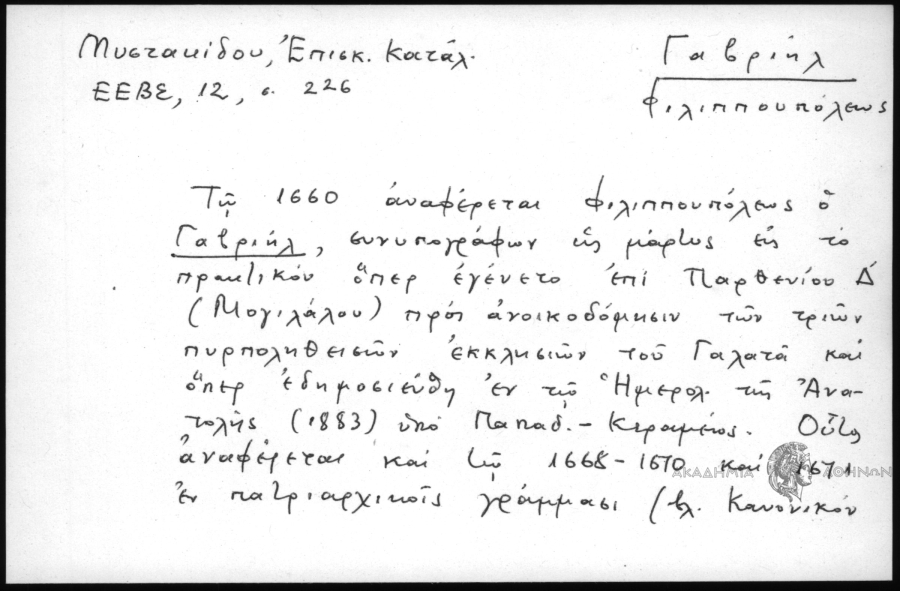 Μυστακίδου, Ἐπισκ. Κατάλ.
ΕΕΒΣ, 12, σ. 226
Γαβριήλ
Φιλιππουπόλεως
Τῷ 1660 ἀναφέρεται Φιλιππουπόλεως ὁ
Γαβριήλ, συνυπογράφων ὡς μάρτυς εἰς τὸ
πρακτικόν ὅπερ ἐγένετο ἐπί Παρθενίου Δ΄
(Μογιλάλου) πρός ἀνοικοδόμησιν τῶν τριῶν
πυρποληθεισῶν ἐκκλησιῶν τοῦ Γαλατᾶ καί
ὅπερ ἐδημοσιεύθη ἐν τῷ Ἡμερολ. τῆς Ἀνα-
τολῆς (1883) ὑπό Παπαδ.-Κεραμέως. Οὗτος
ἀναφέρεται καί τῷ 1668-1670 καί 1671
ἐν πατριαρχικοῖς γράμμασι (βλ. Κανονικόν
ΑΚΑΔΗΜΙΑ ΑΘΗΝΩΝ